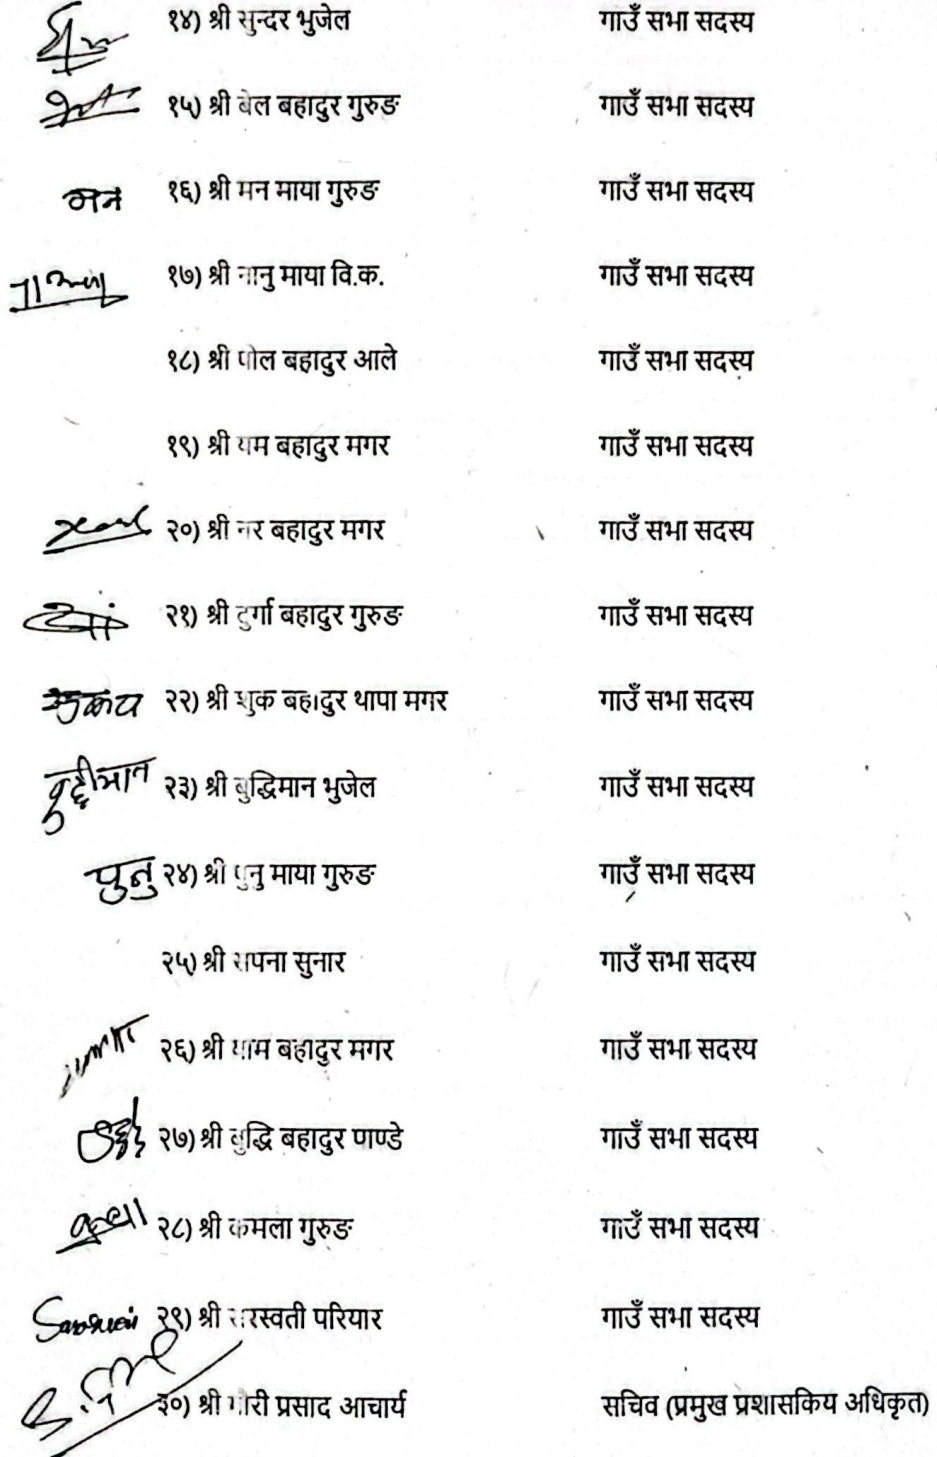 १४) श्री सुन्दर भुजेल गाउँ सभा सदस्य
१५) श्री बेल बहादुर गुरुङ गाउँ सभा सदस्य
मन १६) श्री मन माया गुरुङ गाउँ सभा सदस्य
१७) श्री नानु माया वि.क. गाउँ सभा सदस्य
१८) श्री पोल बहादुर आले गाउँ सभा सदस्य
१९) श्री यम बहादुर मगर गाउँ सभा सदस्य
२०) श्री नर बहादुर मगर गाउँ सभा सदस्य
२१) श्री दुर्गा बहादुर गुरुङ गाउँ सभा सदस्य
२२) श्री शुक बहादुर थापा मगर गाउँ सभा सदस्य
बुद्धीमान २३) श्री बुद्धिमान भुजेल गाउँ सभा सदस्य
पुनु २४) श्री पुनु माया गुरुङ गाउँ सभा सदस्य
२५) श्री सपना सुनार गाउँ सभा सदस्य
२६) श्री याम बहादुर मगर गाउँ सभा सदस्य
२७) श्री बुद्धि बहादुर पाण्डे गाउँ सभा सदस्य
२८) श्री कमला गुरुङ गाउँ सभा सदस्य
२९) श्री सरस्वती परियार गाउँ सभा सदस्य
३०) श्री गोरी प्रसाद आचार्य सचिव (प्रमुख प्रशासकिय अधिकृत)